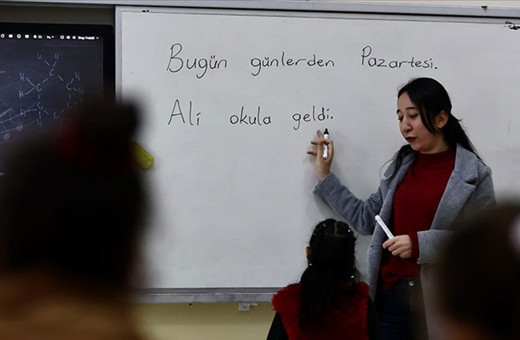 Bugün günlerden Pazartesi.
Ali okula geldi.